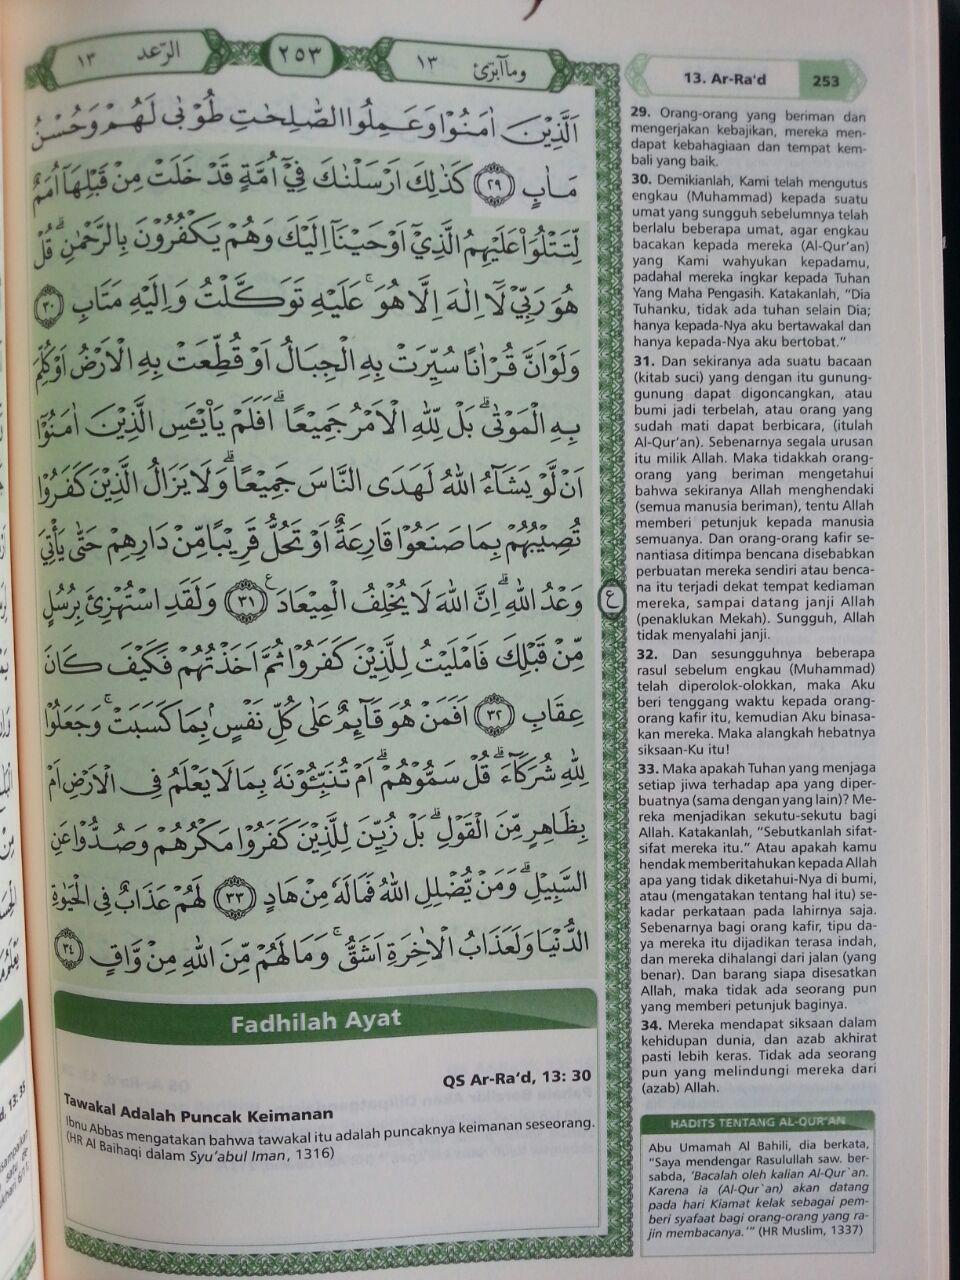 الرّعد ١٣
٢٥٣
وماآبرّئ ١٣
اَلَّذِيْنَ اٰمَنُوْا وَعَمِلُوا الصّٰلِحٰتِ طُوْبٰى لَهُمْ وَحُسْنُ
مَاٰبٍ ٢٩ كَذٰلِكَ اَرْسَلْنٰكَ فِيْٓ اُمَّةٍ قَدْ خَلَتْ مِنْ قَبْلِهَآ اُمَمٌ
لِّتَتْلُوَا۟ عَلَيْهِمُ الَّذِيْٓ اَوْحَيْنَآ اِلَيْكَ وَهُمْ يَكْفُرُوْنَ بِالرَّحْمٰنِۗ قُلْ
هُوَ رَبِّيْ لَآ اِلٰهَ اِلَّا هُوَۚ عَلَيْهِ تَوَكَّلْتُ وَاِلَيْهِ مَتَابِ ٣٠
وَلَوْ اَنَّ قُرْاٰنًا سُيِّرَتْ بِهِ الْجِبَالُ اَوْ قُطِّعَتْ بِهِ الْاَرْضُ اَوْ كُلِّمَ
بِهِ الْمَوْتٰىۗ بَلْ لِّلّٰهِ الْاَمْرُ جَمِيْعًاۗ اَفَلَمْ يَا۟يْـَٔسِ الَّذِيْنَ اٰمَنُوْٓا
اَنْ لَّوْ يَشَاۤءُ اللّٰهُ لَهَدَى النَّاسَ جَمِيْعًاۗ وَلَا يَزَالُ الَّذِيْنَ كَفَرُوْا
تُصِيْبُهُمْ بِمَا صَنَعُوْا قَارِعَةٌ اَوْ تَحُلُّ قَرِيْبًا مِّنْ دَارِهِمْ حَتّٰى يَأْتِيَ
وَعْدُ اللّٰهِۗ اِنَّ اللّٰهَ لَا يُخْلِفُ الْمِيْعَادَ ࣖ ٣١ وَلَقَدِ اسْتُهْزِئَ بِرُسُلٍ
ع
مِّنْ قَبْلِكَ فَاَمْلَيْتُ لِلَّذِيْنَ كَفَرُوْا ثُمَّ اَخَذْتُهُمْ فَكَيْفَ كَانَ
عِقَابِ ٣٢ اَفَمَنْ هُوَ قَاۤىِٕمٌ عَلٰى كُلِّ نَفْسٍۢ بِمَا كَسَبَتْۚ وَجَعَلُوْا
لِلّٰهِ شُرَكَاۤءَۗ قُلْ سَمُّوْهُمْۗ اَمْ تُنَبِّـُٔوْنَهٗ بِمَا لَا يَعْلَمُ فِى الْاَرْضِ اَمْ
بِظَاهِرٍ مِّنَ الْقَوْلِۗ بَلْ زُيِّنَ لِلَّذِيْنَ كَفَرُوْا مَكْرُهُمْ وَصُدُّوْا عَنِ
السَّبِيْلِۗ وَمَنْ يُّضْلِلِ اللّٰهُ فَمَا لَهٗ مِنْ هَادٍ ٣٣ لَهُمْ عَذَابٌ فِى الْحَيٰوةِ
الدُّنْيَا وَلَعَذَابُ الْاٰخِرَةِ اَشَقُّۚ وَمَا لَهُمْ مِّنَ اللّٰهِ مِنْ وَّاقٍ ٣٤
Fadhilah Ayat
QS Ar-Ra‘d, 13: 30
Tawakal Adalah Puncak Keimanan
Ibnu Abbas mengatakan bahwa tawakal itu adalah puncaknya keimanan seseorang.
(HR Al Baihaqi dalam Syu’abul Iman, 1316)
13. Ar-Ra‘d 253
29. Orang-orang yang beriman dan
mengerjakan kebajikan, mereka men-
dapat kebahagiaan dan tempat kem-
bali yang baik.
30. Demikianlah, Kami telah mengutus
engkau (Muhammad) kepada suatu
umat yang sungguh sebelumnya telah
berlalu beberapa umat, agar engkau
bacakan kepada mereka (Al-Qur’an)
yang Kami wahyukan kepadamu,
padahal mereka ingkar kepada Tuhan
Yang Maha Pengasih. Katakanlah, “Dia
Tuhanku, tidak ada tuhan selain Dia;
hanya kepada-Nya aku bertawakal dan
hanya kepada-Nya aku bertobat.”
31. Dan sekiranya ada suatu bacaan
(kitab suci) yang dengan itu gunung-
gunung dapat digoncangkan, atau
bumi jadi terbelah, atau orang yang
sudah mati dapat berbicara, (itulah
Al-Qur’an). Sebenarnya segala urusan
itu milik Allah. Maka tidakkah orang-
orang yang beriman mengetahui
bahwa sekiranya Allah menghendaki
(semua manusia beriman), tentu Allah
memberi petunjuk kepada manusia
semuanya. Dan orang-orang kafir se-
nantiasa ditimpa bencana disebabkan
perbuatan mereka sendiri atau benca-
na itu terjadi dekat tempat kediaman
mereka, sampai datang janji Allah
(penaklukan Mekah). Sungguh, Allah
tidak menyalahi janji.
32. Dan sesungguhnya beberapa
rasul sebelum engkau (Muhammad)
telah diperolok-olokkan, maka Aku
beri tenggang waktu kepada orang-
orang kafir itu, kemudian Aku binasa-
kan mereka. Maka alangkah hebatnya
siksaan-Ku itu!
33. Maka apakah Tuhan yang menjaga
setiap jiwa terhadap apa yang diper-
buatnya (sama dengan yang lain)? Me-
reka menjadikan sekutu-sekutu bagi
Allah. Katakanlah, “Sebutkanlah sifat-
sifat mereka itu.” Atau apakah kamu
hendak memberitahukan kepada Allah
apa yang tidak diketahui-Nya di bumi,
atau (mengatakan tentang hal itu) se-
kadar perkataan pada lahirnya saja.
Sebenarnya bagi orang kafir, tipu da-
ya mereka itu dijadikan terasa indah,
dan mereka dihalangi dari jalan (yang
benar). Dan barang siapa disesatkan
Allah, maka tidak ada seorang pun
yang memberi petunjuk baginya.
34. Mereka mendapat siksaan dalam
kehidupan dunia, dan azab akhirat
pasti lebih keras. Tidak ada seorang
pun yang melindungi mereka dari
(azab) Allah.
HADITS TENTANG AL-QUR’AN
Abu Umamah Al Bahili, dia berkata,
“Saya mendengar Rasulullah saw. ber-
sabda, ‘Bacalah oleh kalian Al-Qur`an.
Karena ia (Al-Qur`an) akan datang
pada hari Kiamat kelak sebagai pem-
beri syafaat bagi orang-orang yang ra-
jin membacanya.’” (HR Muslim, 1337)